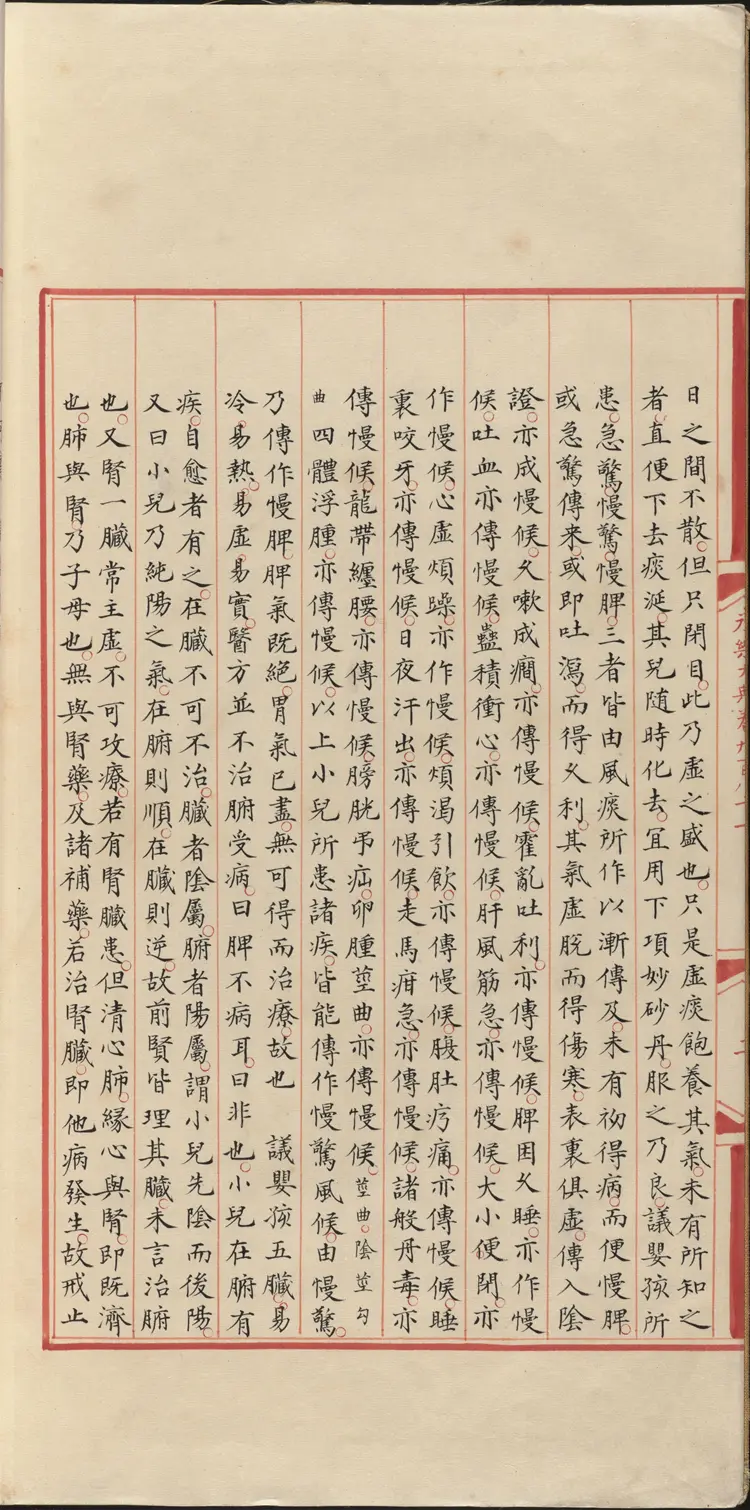 日之間不散但只閉目此乃虛之盛也只是虛痰飽養其氣未有所知之
者直便下去痰涎其兒随時化去宜用下項妙砂丹服之乃良議嬰孩所
患急驚慢驚慢脾三者皆由風痰所作以漸傳及未有初得病而便慢脾
或急驚傳来或即吐瀉而得久利其氣虛脫而得傷寒表裏俱虛傳入陰
證亦成慢候久嗽成癎亦傳慢候霍亂吐利亦傳慢候脾困久睡亦作慢
候吐血亦傳慢候蠱積衝心亦傳慢候肝風筋急亦傳慢候大小便閉亦
作慢候心虛煩躁亦作慢候煩渴引飲亦傳慢候腹肚疠痛亦傳慢候睡
裏咬牙亦傳慢候日夜汗出亦傳慢候走馬疳急亦傳慢候諸般丹毒亦
傳慢候龍帶纏腰亦傳慢候膀胱弔疝卵腫莖曲亦傳慢候莖曲陰莖勾
曲四體浮腫亦傳慢候以上小兒所患諸疾皆能傳作慢驚風候由慢驚
乃傳作慢脾脾氣既絕胃氣已盡無可得而治療故也 議嬰孩五臟易
冷易熱易虛易實醫方並不治腑受病曰脾不病耳曰非也小兒在腑有
疾自愈者有之在臟不可不治臟者陰屬腑者陽屬謂小兒先陰而後陽
又曰小兒乃純陽之氣在腑則順在臟則逆故前賢皆理其臟未言治腑
也又腎一臟常主虛不可攻療若有腎臟患但清心肺緣心與腎即既濟
也肺與腎乃子母也無與腎藥及諸補藥若治腎臟即他病發生故戒止